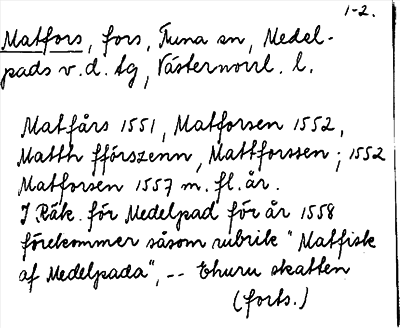 1-2.
Matfors, fors, Tuna sn, Medel-
pads v. d. tg, Västernorrl. l.
Matfårs 1551, Matforsen 1552,
Matth fförszenn, Mattforssen; 1552
Matforsen 1557 m. fl. år.
I Räk. för Medelpad för år 1558
förekommer såsom rubrik "Matfisk
af Medelpada", -- Ehuru skatten
(forts.)